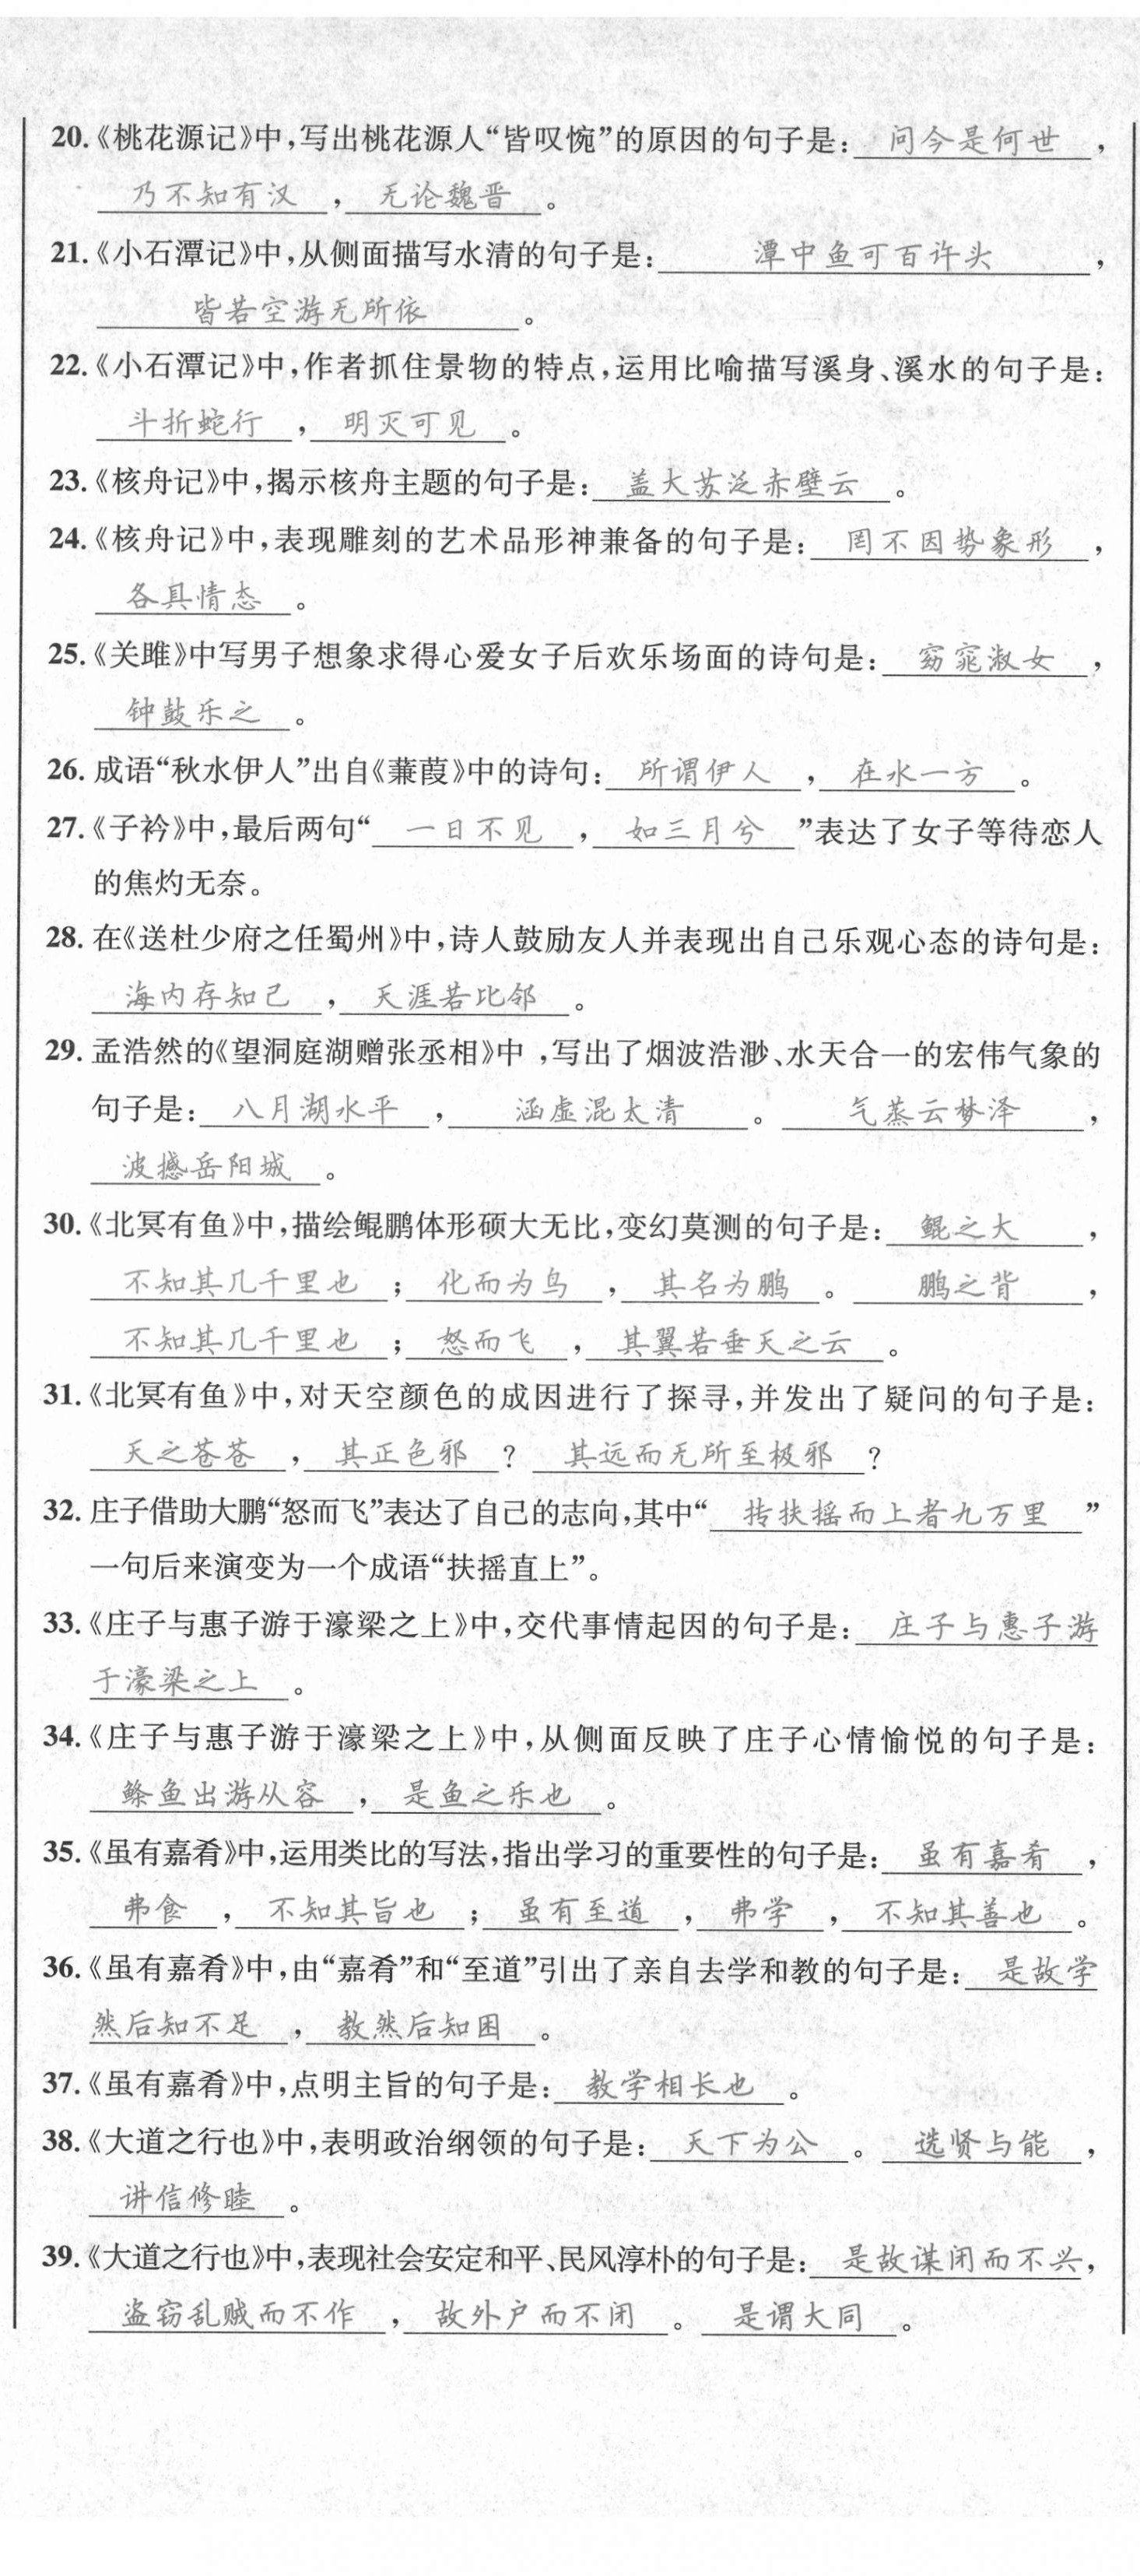 20.《桃花源记》中,写出桃花源人“皆叹惋”的原因的句子是: 问今是何世 ,
乃不知有汉 , 无论魏晋 。
21.《小石潭记》中,从侧面描写水清的句子是: 潭中鱼可百许头 ,
皆若空游无所依 。
22.《小石潭记》中,作者抓住景物的特点,运用比喻描写溪身、溪水的句子是:
斗折蛇行 , 明灭可见 。
23.《核舟记》中,揭示核舟主题的句子是: 盖大苏泛赤壁云 。
24.《核舟记》中,表现雕刻的艺术品形神兼备的句子是: 罔不因势象形 ,
各具情态 。
25.《关雎》中写男子想象求得心爱女子后欢乐场面的诗句是: 窈窕淑女 ,
钟鼓乐之 。
26. 成语“秋水伊人”出自《蒹葭》中的诗句: 所谓伊人 , 在水一方 。
27.《子衿》中,最后两句“ 一日不见 , 如三月兮 ”表达了女子等待恋人
的焦灼无奈。
28. 在《送杜少府之任蜀州》中,诗人鼓励友人并表现出自己乐观心态的诗句是:
海内存知己 , 天涯若比邻 。
29. 孟浩然的《望洞庭湖赠张丞相》中 ,写出了烟波浩渺、水天合一的宏伟气象的
句子是: 八月湖水平 , 涵虚混太清 。 气蒸云梦泽 ,
波撼岳阳城 。
30.《北冥有鱼》中,描绘鲲鹏体形硕大无比,变幻莫测的句子是: 鲲之大 ,
不知其几千里也 ; 化而为鸟 , 其名为鹏 。 鹏之背 ,
不知其几千里也 ; 怒而飞 , 其翼若垂天之云 。
31.《北冥有鱼》中,对天空颜色的成因进行了探寻,并发出了疑问的句子是:
天之苍苍 , 其正色邪 ? 其远而无所至极邪 ?
32. 庄子借助大鹏“怒而飞”表达了自己的志向,其中“ 抟扶摇而上者九万里 ”
一句后来演变为一个成语“扶摇直上”。
33.《庄子与惠子游于濠梁之上》中,交代事情起因的句子是: 庄子与惠子游
于濠梁之上 。
34.《庄子与惠子游于濠梁之上》中,从侧面反映了庄子心情愉悦的句子是:
鲦鱼出游从容 , 是鱼之乐也 。
35.《虽有嘉肴》中,运用类比的写法,指出学习的重要性的句子是: 虽有嘉肴 ,
弗食 , 不知其旨也 ; 虽有至道 , 弗学 , 不知其善也 。
36.《虽有嘉肴》中,由“嘉肴”和“至道”引出了亲自去学和教的句子是: 是故学
然后知不足 , 教然后知困 。
37.《虽有嘉肴》中,点明主旨的句子是: 教学相长也 。
38.《大道之行也》中,表明政治纲领的句子是: 天下为公 。 选贤与能 ,
讲信修睦 。
39.《大道之行也》中,表现社会安定和平、民风淳朴的句子是: 是故谋闭而不兴,
盗窃乱贼而不作 , 故外户而不闭 。 是谓大同 。